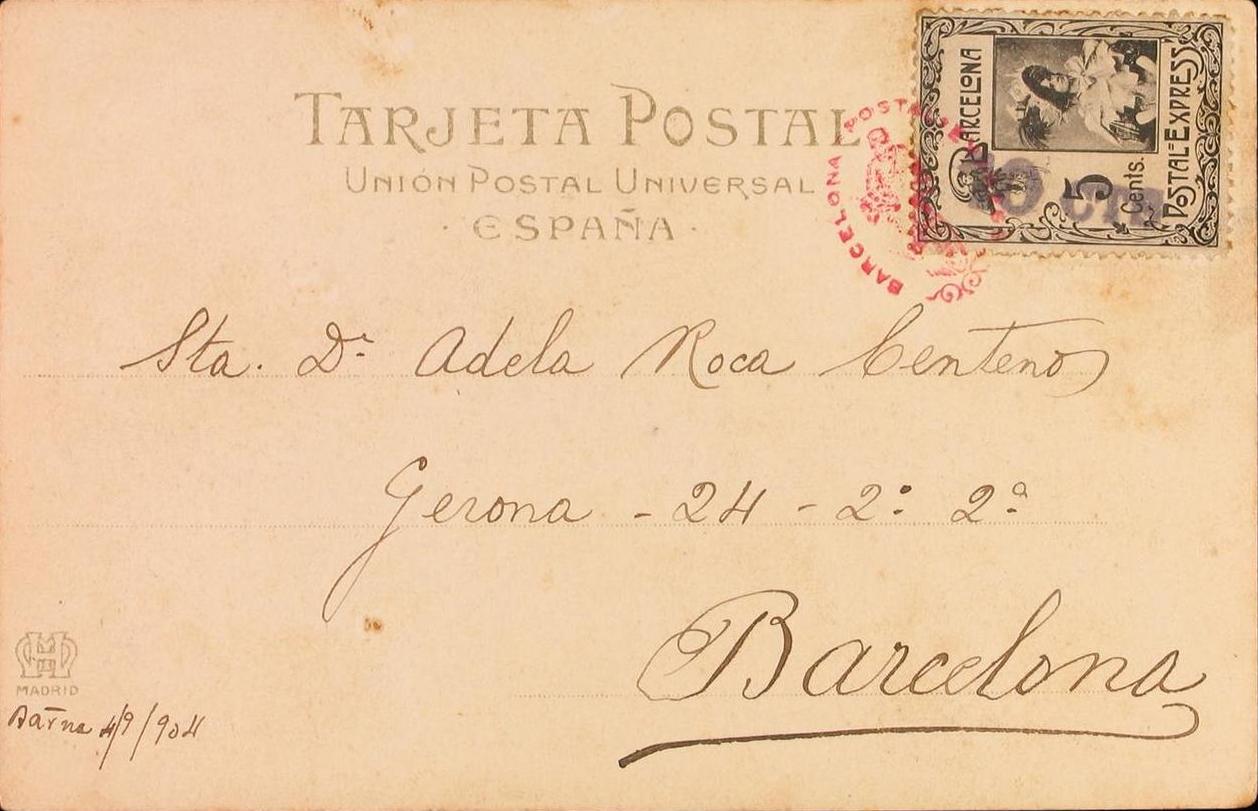 TARJETA POSTAL
UNIÓN POSTAL UNIVERSAL
· ESPAÑA ·
BARCELONA
5
Cents.
POSTAL-EXPRESS
BARCELONA POSTAL
Sta. Dª Adela Roca Centeno
Gerona - 24 - 2º 2ª
Barcelona
MADRID
Barna 4/9/904